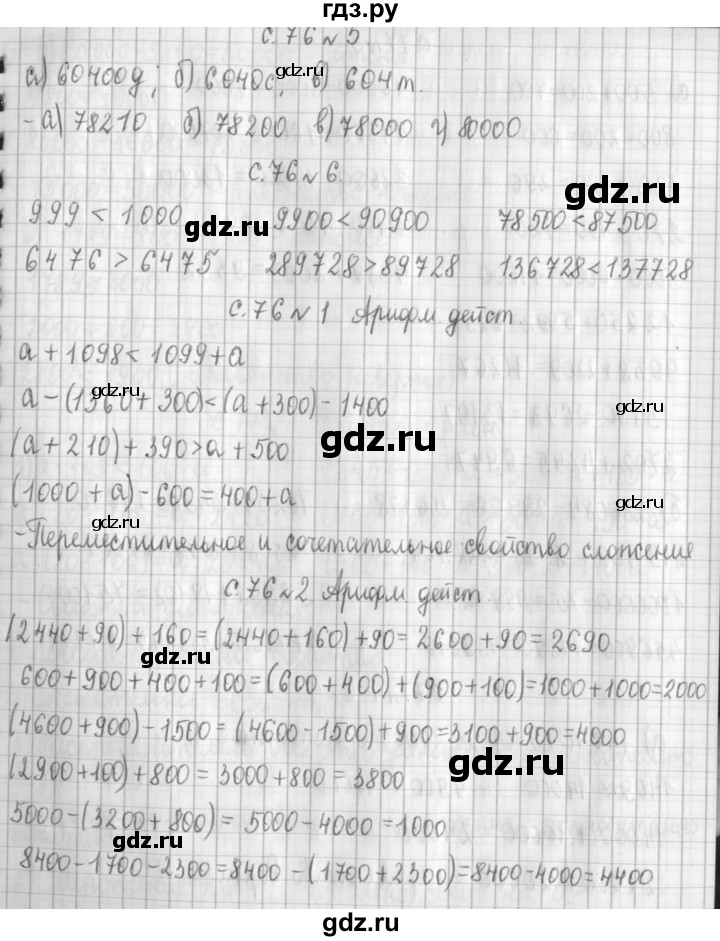 гдз.ру
с. 76 № 5.
а) 60400д; б) 6040с, в) 604т.
- а) 78210 б) 78200 в) 78000 г) 80000
с. 76 № 6.
999 < 1000 9900 < 90900 78500 < 87500
6476 > 6475 289728 > 89728 136728 < 137728
с. 76 № 1 Арифм дейст.
a + 1098 < 1099 + a
a - (1360 + 300) < (a + 300) - 1400
(a + 210) + 390 > a + 500
(1000 + a) - 600 = 400 + a
- Переместительное и сочетательное свойство сложения
с. 76 № 2 Арифм дейст
(2440 + 90) + 160 = (2440 + 160) + 90 = 2600 + 90 = 2690
600 + 900 + 400 + 100 = (600 + 400) + (900 + 100) = 1000 + 1000 = 2000
(4600 + 900) - 1500 = (4600 - 1500) + 900 = 3100 + 900 = 4000
(2900 + 100) + 800 = 3000 + 800 = 3800
5000 - (3200 + 800) = 5000 - 4000 = 1000
8400 - 1700 - 2300 = 8400 - (1700 + 2300) = 8400 - 4000 = 4400
gdz.ru
gdz.ru
gdz.ru
gdz.ru
gdz.ru
gdz.ru
gdz.ru
gdz.ru
gdz.ru
gdz.ru
gdz.ru
gdz.ru
gdz.ru